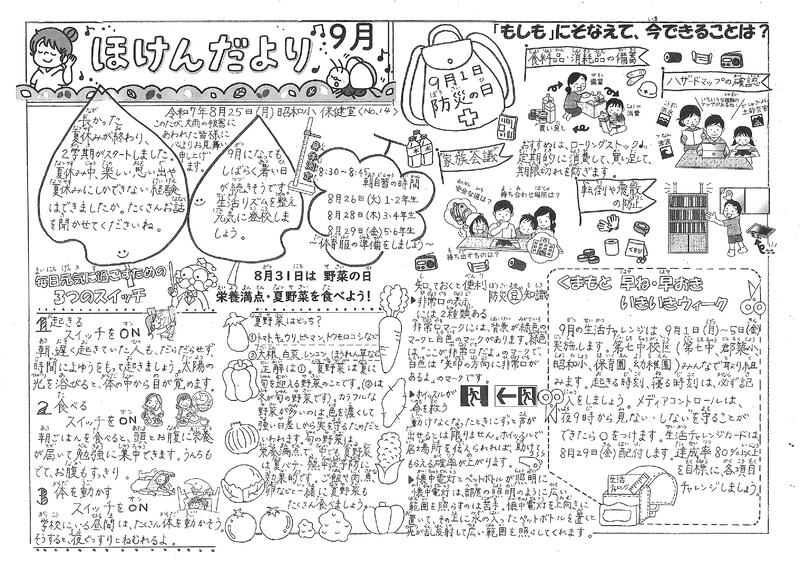 ほけんだより
9月
令和7年8月25日(月) 昭和小 保健室<No.14>
長かった
夏休みが終わり、
2学期がスタートしました。
夏休み中、楽しい思い出や
夏休みにしかできない経験
はできましたか。たくさんお話
を聞かせてくださいね。
このたび、大雨の被害に
あわれた皆様に
心よりお見舞い
申し上げ
ます。
9月になっても
しばらく暑い日
が続きそうです。
生活リズムを整え
元気に登校しま
しょう。
8:30~8:45
朝自習の時間
8月26日(火) 1・2年生
8月28日(木) 3・4年生
8月29日(金) 5・6年生
~体育服の準備をしましょう~
毎日元気に過ごすための
3つのスイッチ
1 起きる
スイッチをON
朝、遅く起きていた人も、だらだらせず
時間によゆうをもって起きましょう。太陽
の光を浴びると、体の中から目が覚めます。
2 食べる
スイッチをON
朝ごはんを食べると、頭とお腹に栄養
が届いて勉強に集中できます。うんちも
でて、お腹もすっきり。
3 体を動かす
スイッチをON
学校にいる昼間は、たくさん体を動かそう。
そうすると、夜ぐっすりとねむれるよ。
8月31日は 野菜の日
栄養満点・夏野菜を食べよう!
夏野菜はどっち?
①トマト、キュウリ、ピーマン、トウモロコシなど
②大根、白菜、レンコン、ほうれん草など
正解は①。夏野菜は夏に
旬を迎える野菜のことです。(②は
冬が旬の野菜です)。カラフルな
野菜が多いのは、色を濃くして
強い日差しから実を守るためだと
いわれます。旬の野菜は、
栄養満点で、中でも夏野菜
は夏バテ・熱中症予防に
効果的です。ご飯や肉、魚、
卵などと一緒に夏野菜も
たくさん食べましょう。
9月1日
防災の日
「もしも」にそなえて、今できることは?
食料品・消耗品の備蓄
備蓄
消費
買い足し
おすすめは、ローリングストック。
定期的に消費して、買い足して、
期限切れを防ぎます。
ハザードマップの確認
土砂災害
転倒や飛散
の防止
家族会議
安全な場は?
待ち合わせ場所は?
持ち出すものは?
知っておくと便利 防災豆知識
▶非常口の表示
には2種類ある
非常口マークには、背景が緑色の
マークと白色のマークがあります。緑色
は、「ここが非常口だよ」のマークで、
白色は「矢印の方向に非常口が
あるよ」のマークです。
▶ホイッスルが
命を救う
動けなくなったときにずっと声が
出せるとは限りません。ホイッスルで
居場所を伝えられれば、助けて
もらえる確率が上がります。
▶懐中電灯とペットボトルが照明に
懐中電灯は、部屋の照明のように広い
範囲を照らすのは苦手。懐中電灯を上向きに
置いて、その上に水の入ったペットボトルを置くと
光が乱反射して広い範囲を照らしてくれます。
くまもと 早ね・早おき
いきいきウィーク
9月の生活チャレンジは、9月1日(月)~5日(金)
実施します。
昭和小、保育園、幼稚園)みんなで取り組
みます。起きる時刻、寝る時刻は、必ず記
入をしましょう。メディアコントロールは、
夜9時から見ない・しないを守ることが
できたら○をつけます。生活チャレンジカードは、
8月29日(金)配付します。達成率80%以上
を目標に、各項目
チャレンジしましょう。
生活
チャレンジ